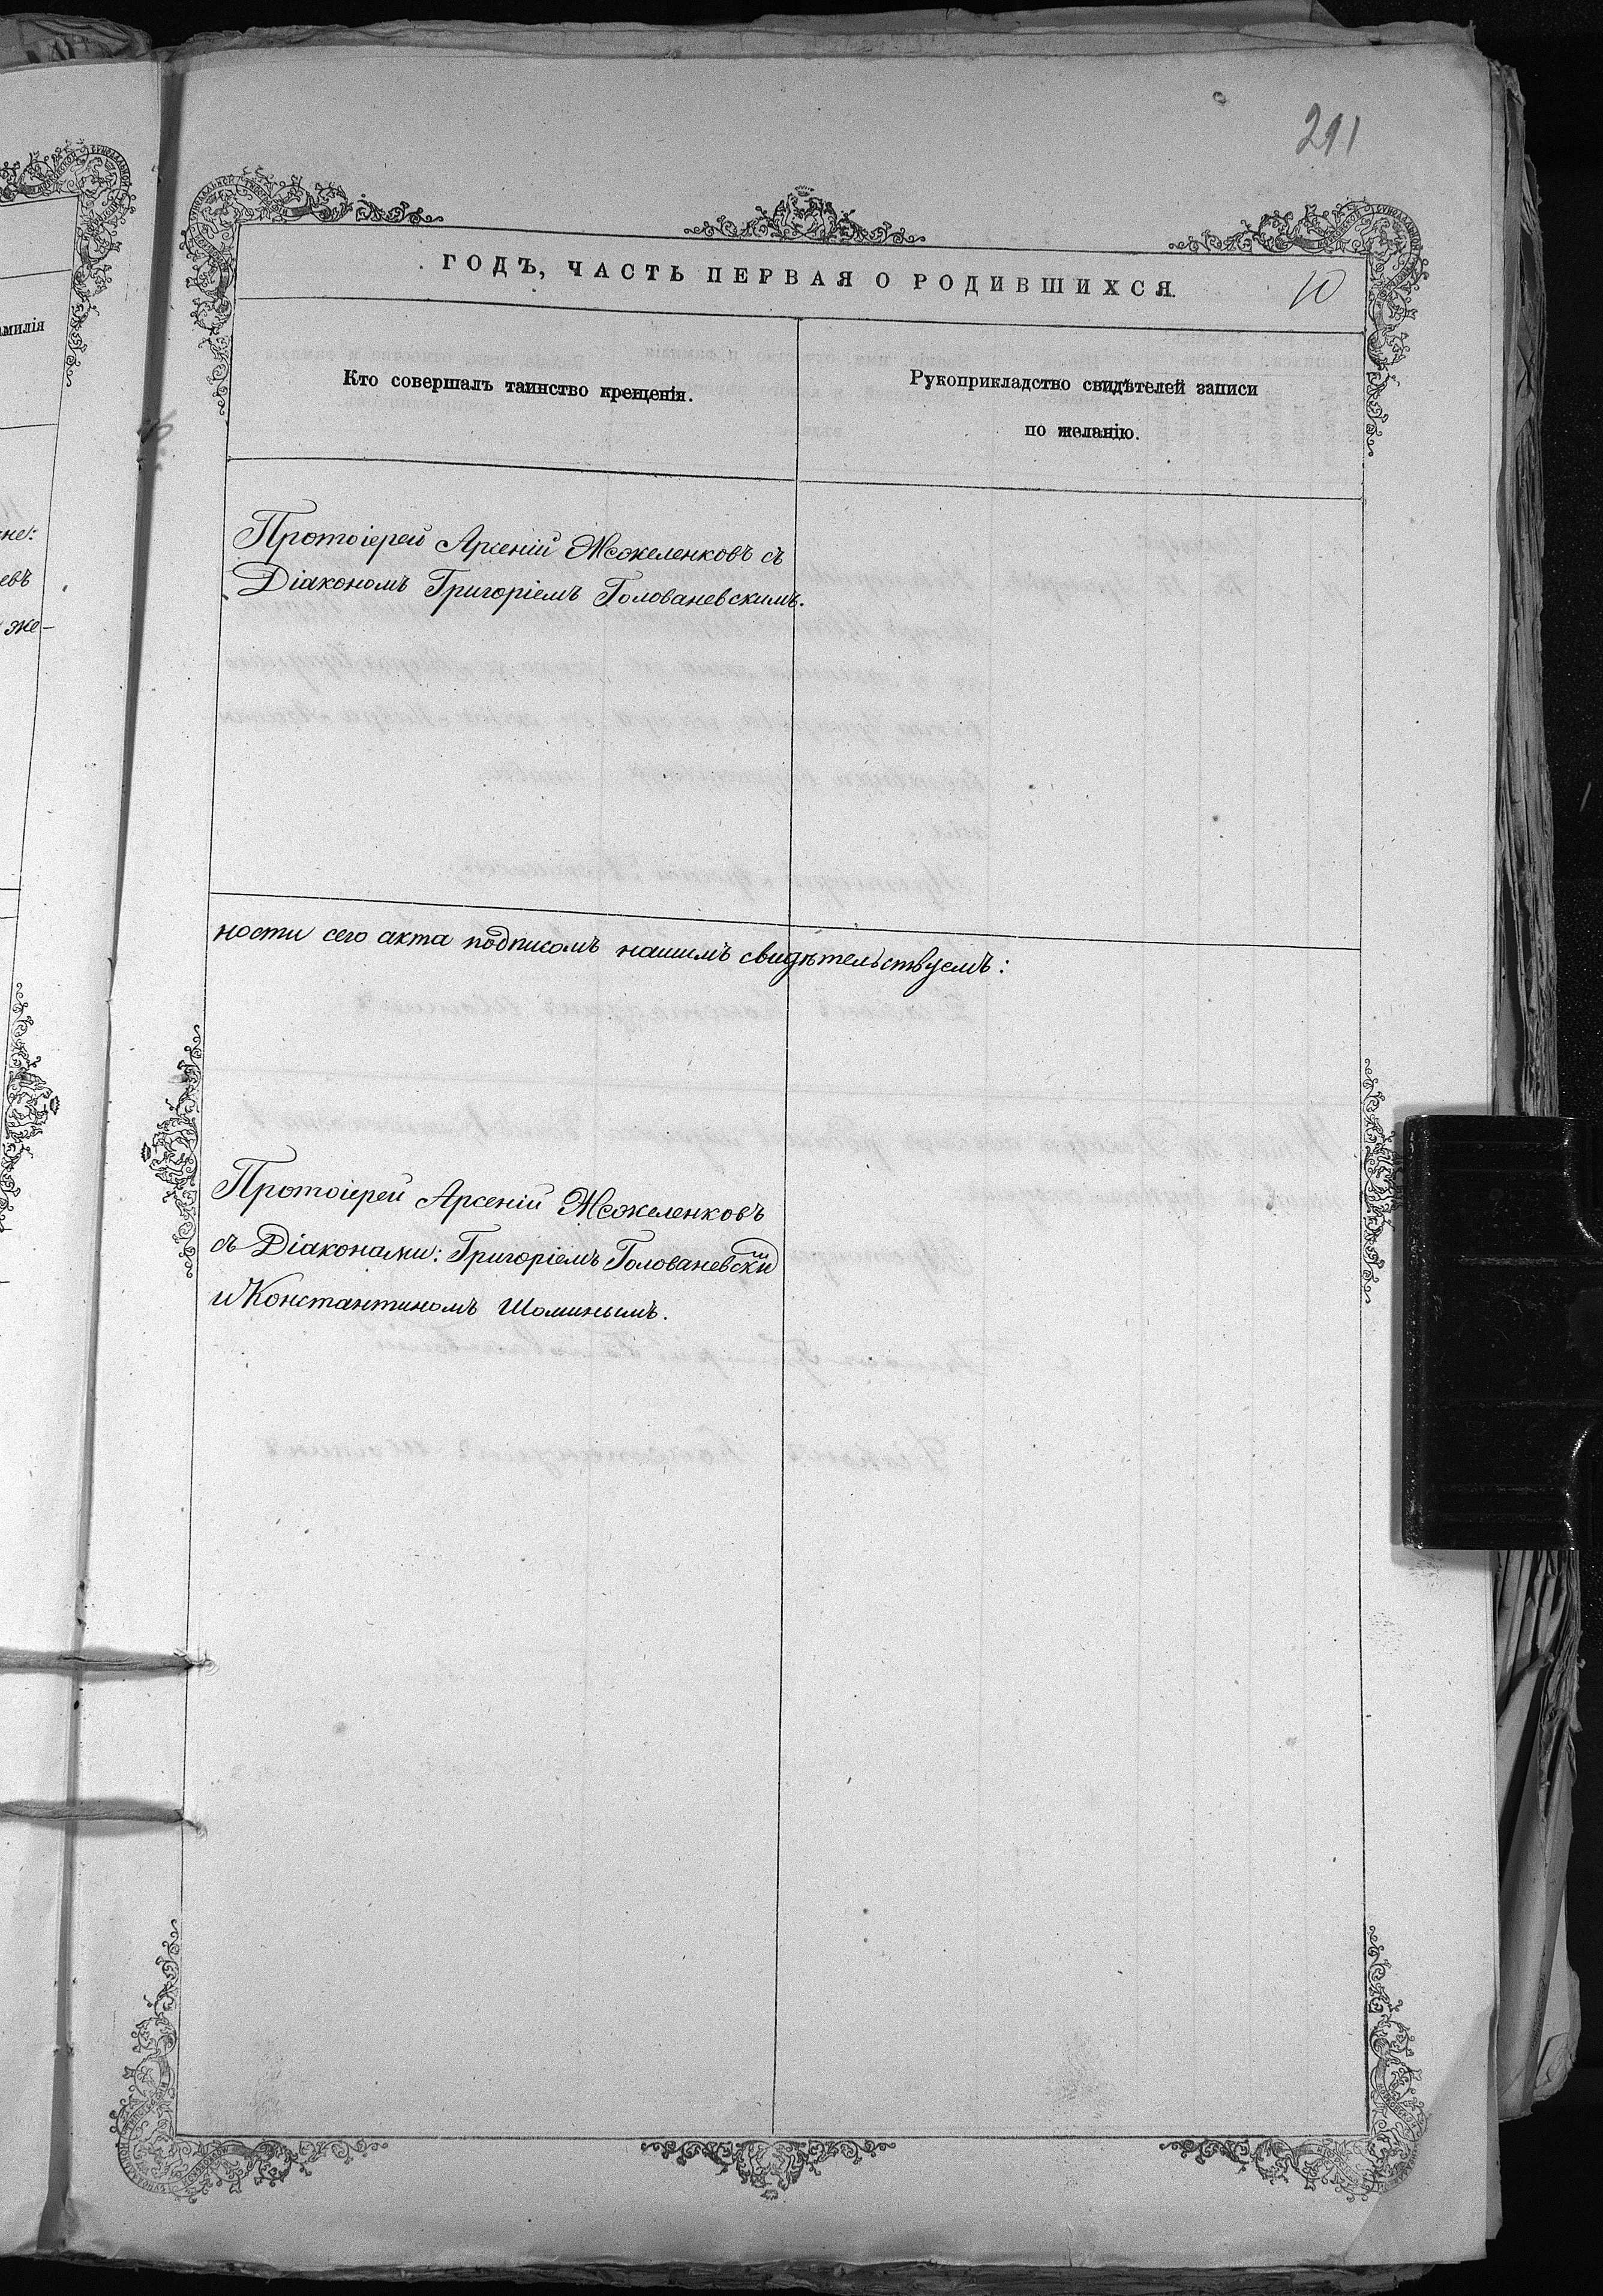 211
ГОДЪ, ЧАСТЬ ПЕРВАЯ О РОДИВШИХСЯ.
10
Кто совершалъ таинство крещенія.
Рукоприкладство свидѣтелей записи
по желанію.
амилія
Протоіерей Арсеній Жежеленковъ съ
Діакономъ Григоріемъ Голованевскимъ.
не:
евъ
же-
ности сего акта подписомъ нашимъ свидѣтельствуемъ:
Протоіерей Арсеній Жежеленковъ
съ Діаконами: Григоріемъ Голованевским
и Константиномъ Шоминымъ.